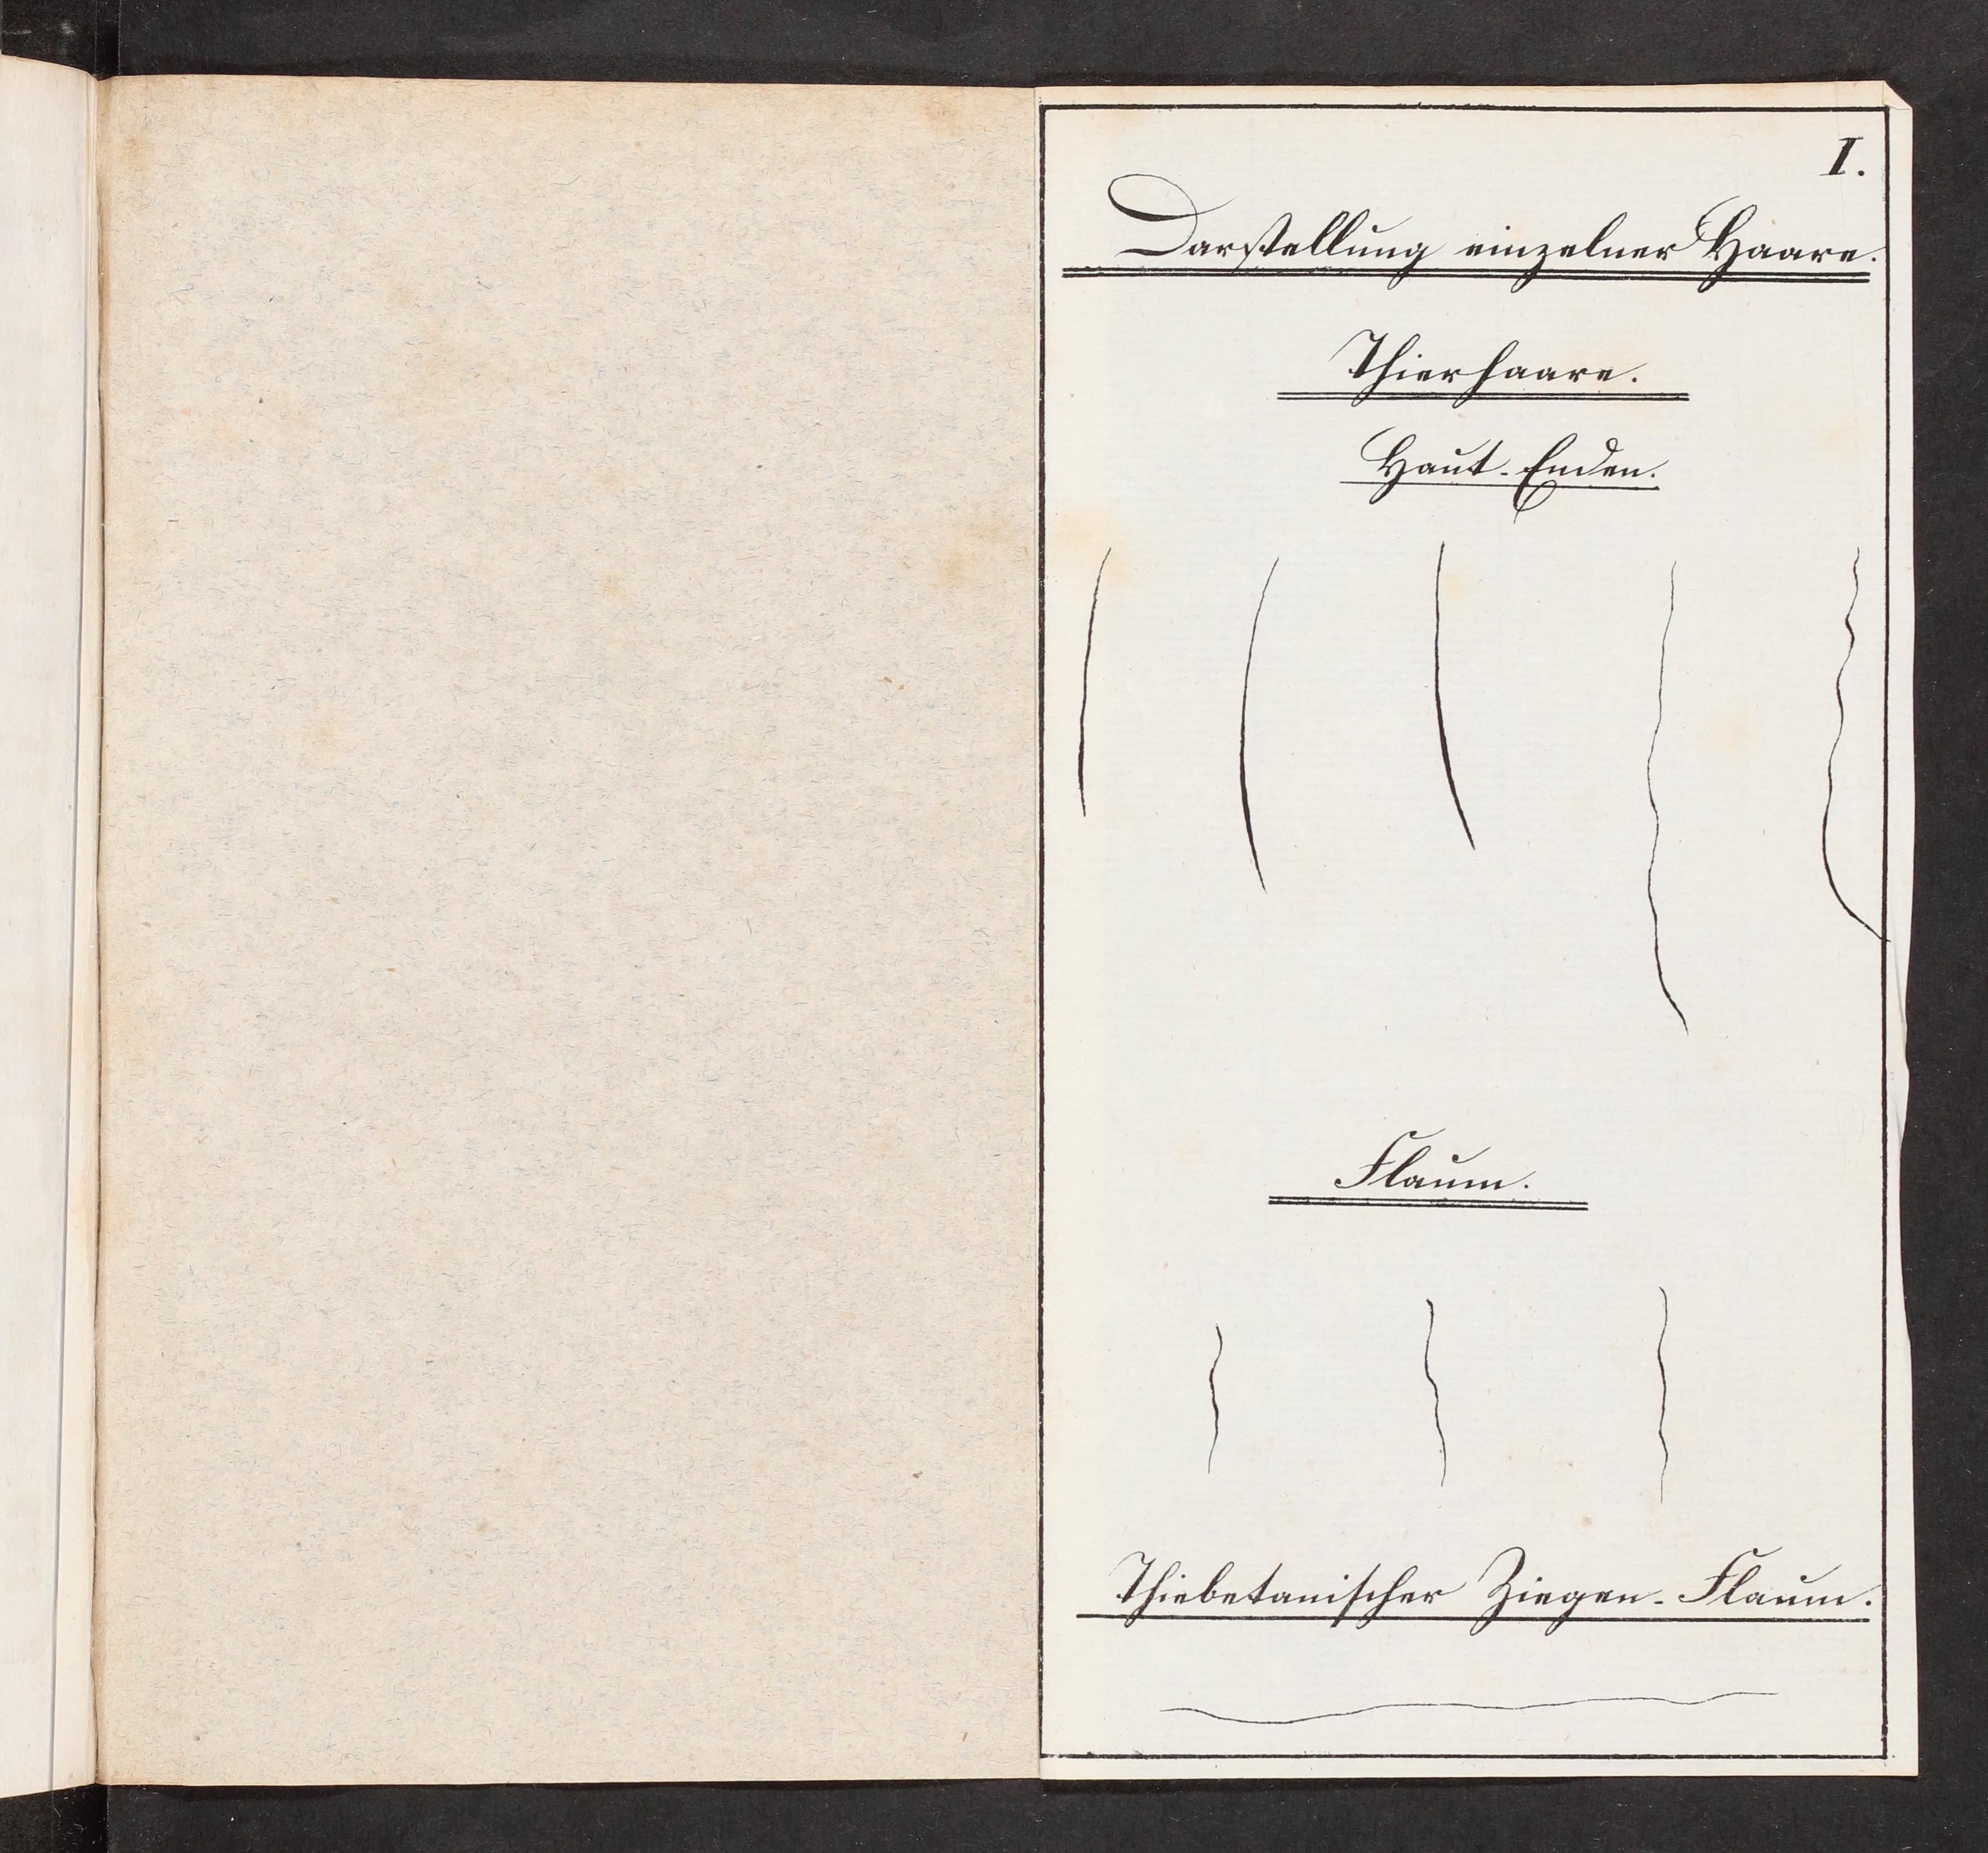 I.
Darstellung einzelner Haare.
Thierhaare.
Haut-Enden.
Flaum.
Thiebetanischer Ziegen-Flaum.